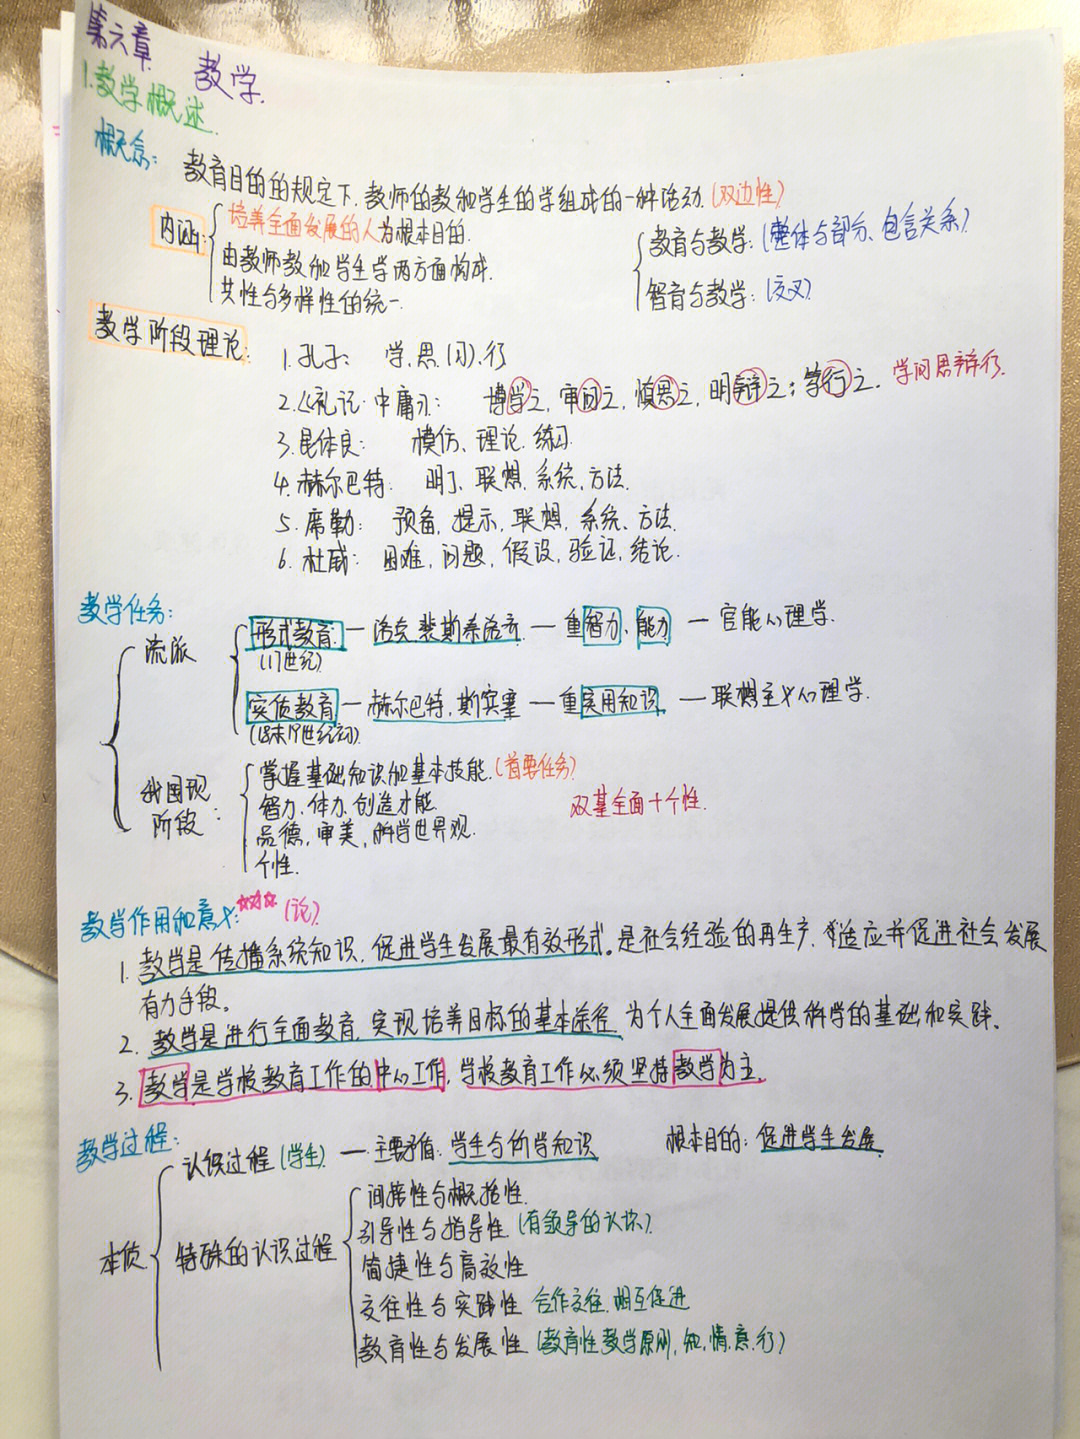 第六章 教学.
1.教学概述.
概念: 教育目的的规定下.教师的教和学生的学组成的一种活动.(双边性)
内涵: 培养全面发展的人为根本目的.
由教师教和学生学两方面构成.
共性与多样性的统一.
教育与教学:(整体与部分、包含关系)
智育与教学:(交叉)
教学阶段理论:
1.孔子: 学.思.(习).行
2.《礼记·中庸》: 博学之,审问之,慎思之,明辩之;笃行之. 学问思辩行.
3.昆体良: 模仿、理论.练习.
4.赫尔巴特: 明了、联想.系统、方法.
5.席勒: 预备,提示,联想,系统、方法.
6.杜威: 困难,问题,假设,验证,结论.
教学任务:
流派
形式教育 — 洛克 裴斯泰洛齐 — 重智力、能力 — 官能心理学.
(17世纪)
实质教育 — 赫尔巴特,斯宾塞 — 重实用知识 — 联想主义心理学.
(18末19世纪初)
我国现阶段:
掌握基础知识和基本技能.(首要任务)
智力、体力、创造才能.
品德,审美,科学世界观.
个性.
双基全面十个性.
教学作用和意义:☆☆☆ (论)
1.教学是传播系统知识,促进学生发展最有效形式。是社会经验的再生产.适应并促进社会发展
有力手段。
2.教学是进行全面教育.实现培养目标的基本途径.为个人全面发展提供科学的基础和实践.
3.教学是学校教育工作的中心工作,学校教育工作必须坚持教学为主.
教学过程:
本质
认识过程(学生) — 主要矛盾:学生与所学知识 根本目的:促进学生发展
特殊的认识过程
间接性与概括性.
引导性与指导性(有领导的认识)
简捷性与高效性
交往性与实践性 合作交往.相互促进
教育性与发展性 (教育性教学原则,知.情.意.行)